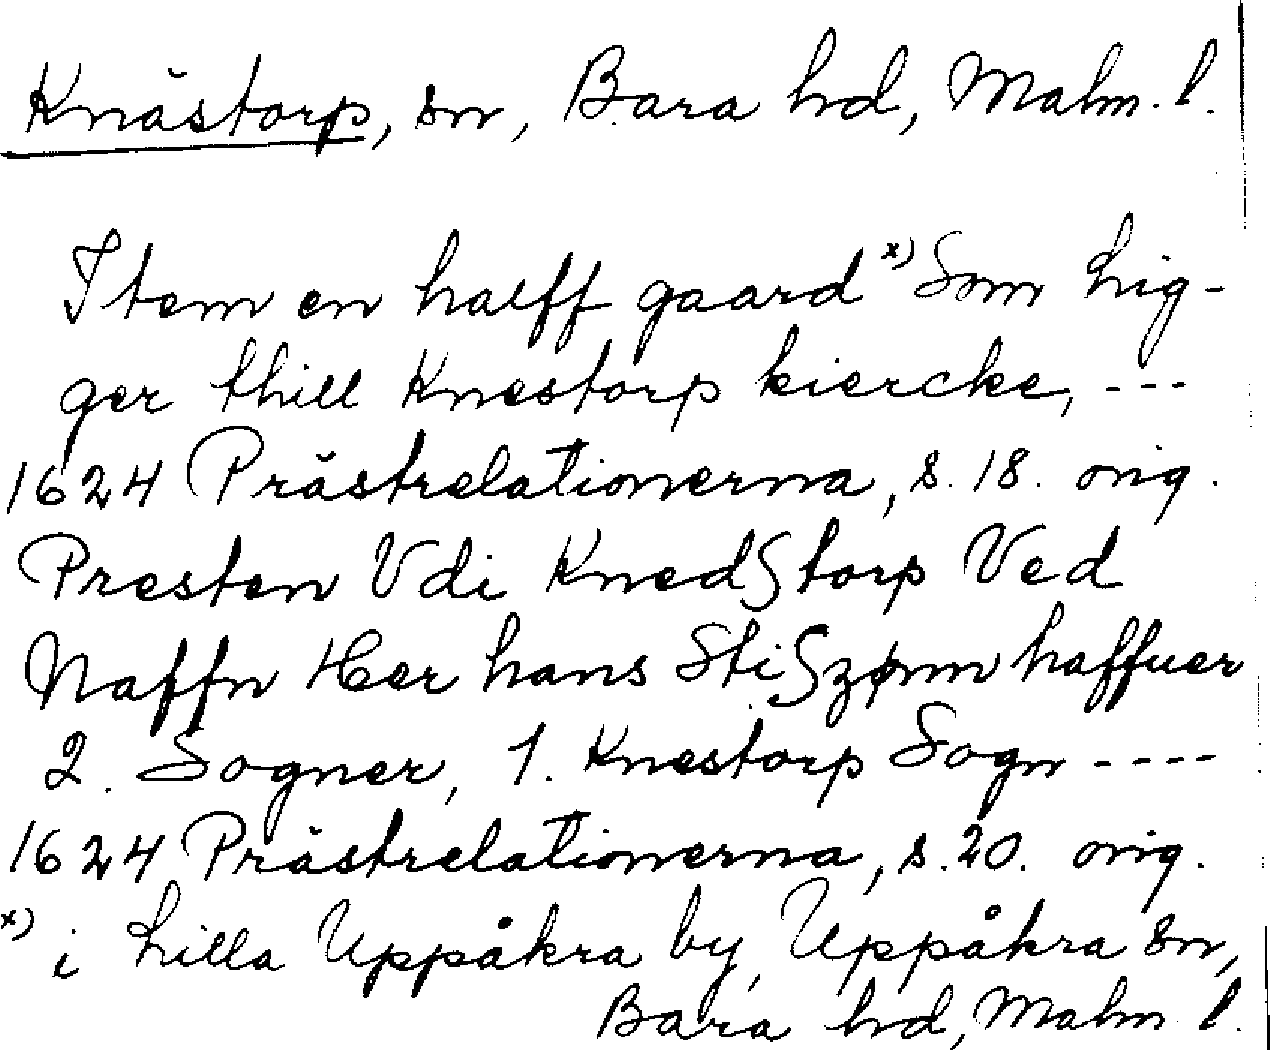 Knästorp, sn, Bara hd, Malm. l.
Item en halff gaard x) Som Lig-
ger thill Knestorp kiercke, ---
1624 Prästrelationerna, s. 18. orig.
Presten Vdi KnedStorp Ved
Naffn Her hans StiSzønn haffuer
2. Sogner, 1. Knestorp Sogn ----
1624 Prästrelationerna, s. 20. orig.
x) i Lilla Uppåkra by, Uppåkra sn,
Bara hd, Malm l.